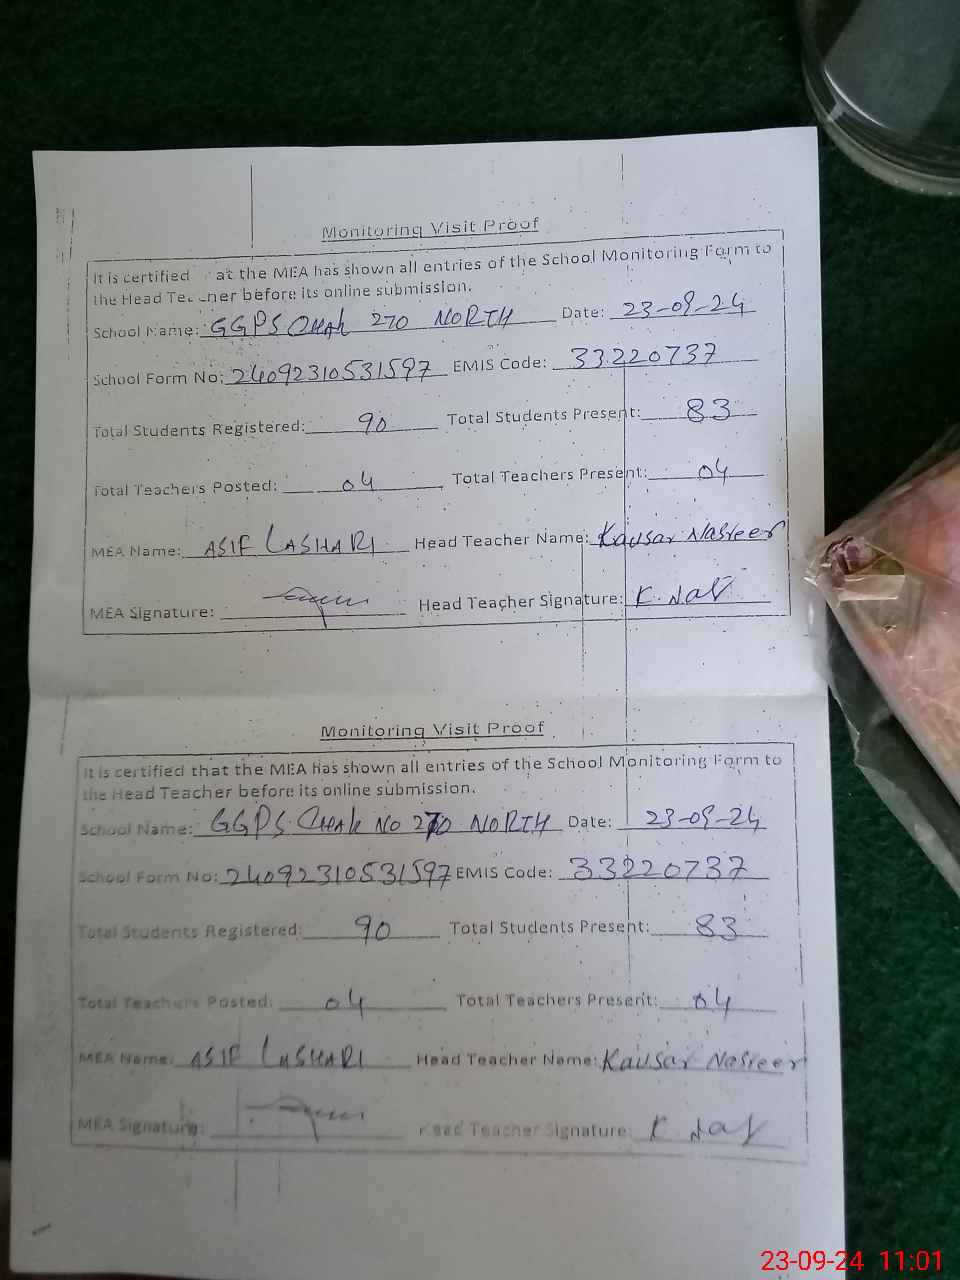 Monitoring Visit Proof
It is certified at the MEA has shown all entries of the School Monitoring Form to
the Head Teacher before its online submission.
School Name: GGPS CHAK 270 NORTH Date: 23-09-24
School Form No: 24092310531597 EMIS Code: 33220737
Total Students Registered: 90 Total Students Present: 83
Total Teachers Posted: 04 Total Teachers Present: 04
MEA Name: ASIF LASHARI Head Teacher Name: Kausar Nasreer
MEA Signature: Head Teacher Signature: K. Nas
Monitoring Visit Proof
It is certified that the MEA has shown all entries of the School Monitoring Form to
the Head Teacher before its online submission.
School Name: GGPS CHAK NO 270 NORTH Date: 23-09-24
School Form No: 24092310531597 EMIS Code: 33220737
Total Students Registered: 90 Total Students Present: 83
Total Teachers Posted: 04 Total Teachers Present: 04
MEA Name: ASIF LASHARI Head Teacher Name: Kausar Nasreer
MEA Signature: Head Teacher Signature: K. Nas
23-09-24 11:01